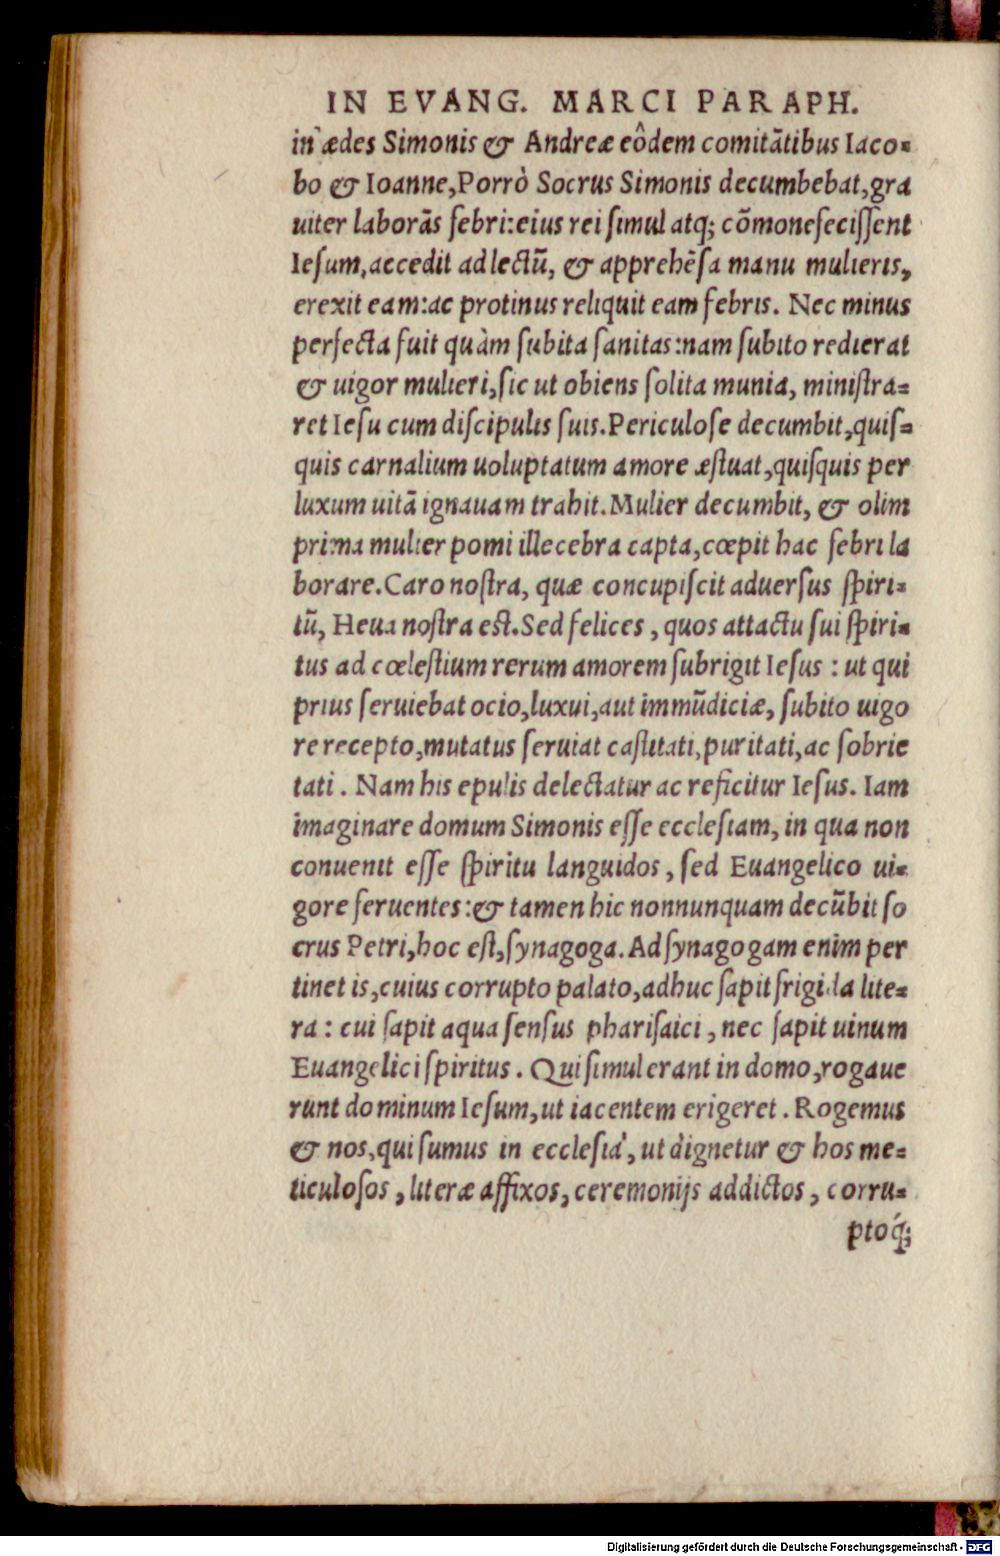 IN EVANG. MARCI PARAPH.
in ædes Simonis & Andreæ eôdem comitãtibus Iaco-
bo & Ioanne, Porrò Socrus Simonis decumbebat, gra
uiter laborãs febri: eius rei ſimul atq; cõmonefeciſſent
Ieſum, accedit ad lectũ, & apprehẽſa manu mulieris,
erexit eam: ac protinus reliquit eam febris. Nec minus
perfecta fuit quàm ſubita ſanitas: nam ſubito redierat
& uigor mulieri, ſic ut obiens ſolita munia, miniſtra-
ret Ieſu cum diſcipulis ſuis. Periculoſe decumbit, quiſ-
quis carnalium uoluptatum amore æſtuat, quiſquis per
luxum uitã ignauam trahit. Mulier decumbit, & olim
prima mulier pomi illecebra capta, cœpit hac febri la
borare. Caro noſtra, quæ concupiſcit aduerſus ſpiri-
tũ, Heua noſtra eſt. Sed felices, quos attactu ſui ſpiri-
tus ad cœleſtium rerum amorem ſubrigit Ieſus: ut qui
prius ſeruiebat ocio, luxui, aut immũdiciæ, ſubito uigo
re recepto, mutatus ſeruiat caſtitati, puritati, ac ſobrie
tati. Nam his epulis delectatur ac reficitur Ieſus. Iam
imaginare domum Simonis eſſe eccleſiam, in qua non
conuenit eſſe ſpiritu languidos, ſed Euangelico ui-
gore feruentes: & tamen hic nonnunquam decũbit ſo
crus Petri, hoc eſt, ſynagoga. Ad ſynagogam enim per
tinet is, cuius corrupto palato, adhuc ſapit frigida lite-
ra: cui ſapit aqua ſenſus phariſaici, nec ſapit uinum
Euangelici ſpiritus. Qui ſimul erant in domo, rogaue
runt dominum Ieſum, ut iacentem erigeret. Rogemus
& nos, qui ſumus in eccleſia, ut dignetur & hos me-
ticuloſos, literæ affixos, ceremonijs addictos, corru-
ptoq́;
Digitalisierung gefördert durch die Deutsche Forschungsgemeinschaft - DFG